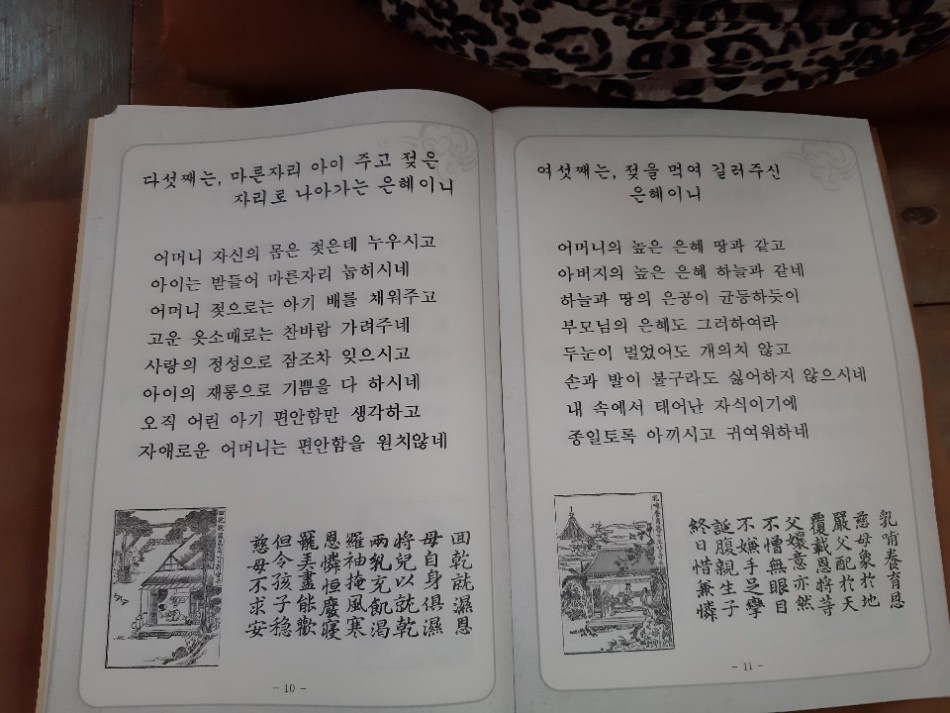 다섯째는, 마른자리 아이 주고 젖은
자리로 나아가는 은혜이니
어머니 자신의 몸은 젖은데 누우시고
아이는 받들어 마른자리 눕히시네
어머니 젖으로는 아기 배를 채워주고
고운 옷소매로는 찬바람 가려주네
사랑의 정성으로 잠조차 잊으시고
아이의 재롱으로 기쁨을 다 하시네
오직 어린 아기 편안함만 생각하고
자애로운 어머니는 편안함을 원치않네
回乾就濕恩
母自身俱濕
將兒以就乾
兩乳充飢渴
羅袖掩風寒
恩憐恒廢寢
寵美盡能歡
但令孩子穩
慈母不求安
- 10 -
여섯째는, 젖을 먹여 길러주신
은혜이니
어머니의 높은 은혜 땅과 같고
아버지의 높은 은혜 하늘과 같네
하늘과 땅의 은공이 균등하듯이
부모님의 은혜도 그러하여라
두눈이 멀었어도 개의치 않고
손과 발이 불구라도 싫어하지 않으시네
내 속에서 태어난 자식이기에
종일토록 아끼시고 귀여워하네
乳哺養育恩
慈母象於地
嚴父配於天
覆載恩將等
父孃意亦然
不憎無眼目
不嫌手足攣
誕腹親生子
終日惜兼憐
- 11 -